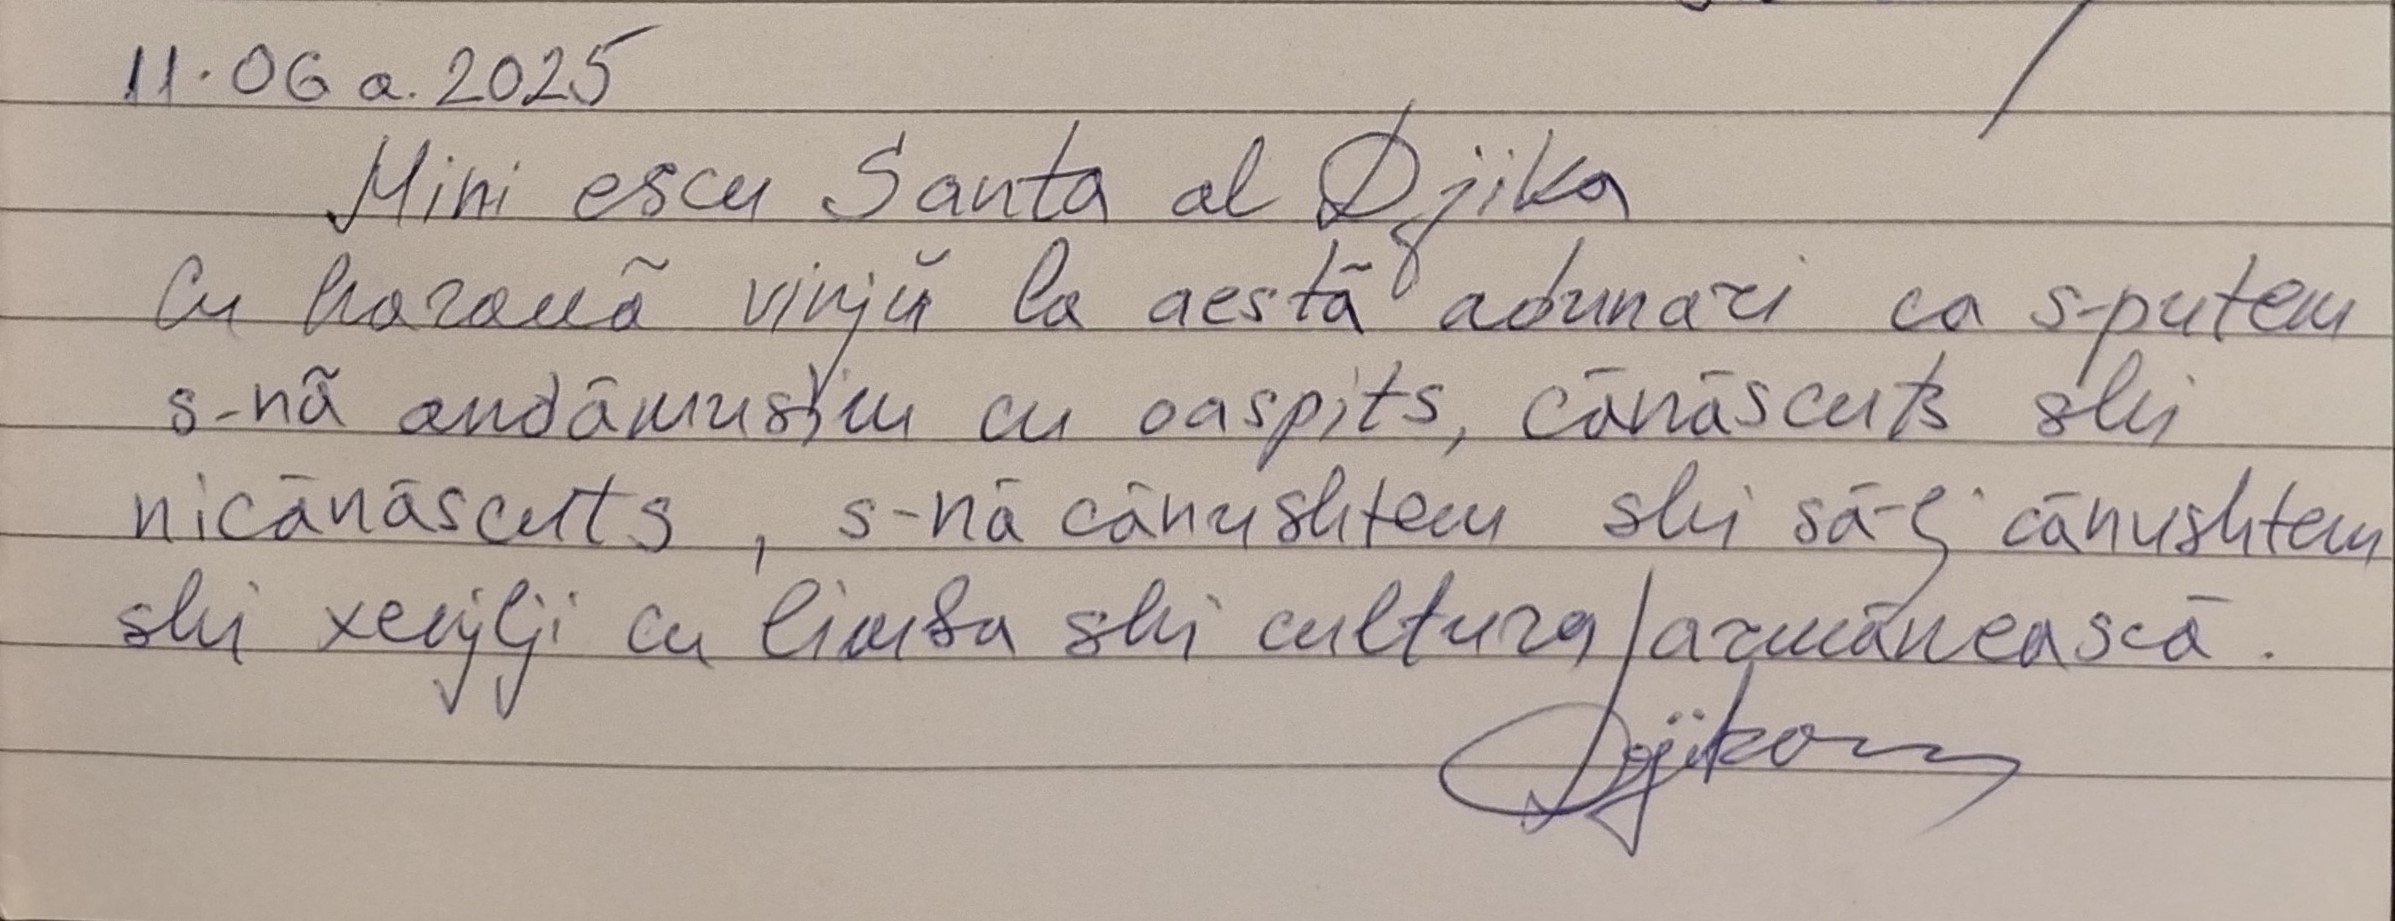 11.06 a. 2025
Mini escu Santa al Djika
Cu haraua vinjŭ la aestã adunari ca s-putem
s-nã andãmusim cu oaspits, cãnãscuts shi
nicãnãscuts, s-nã cãnushtem shi sã-lj cãnushtem
shi xenjlji cu limba shi cultura armãneascã.